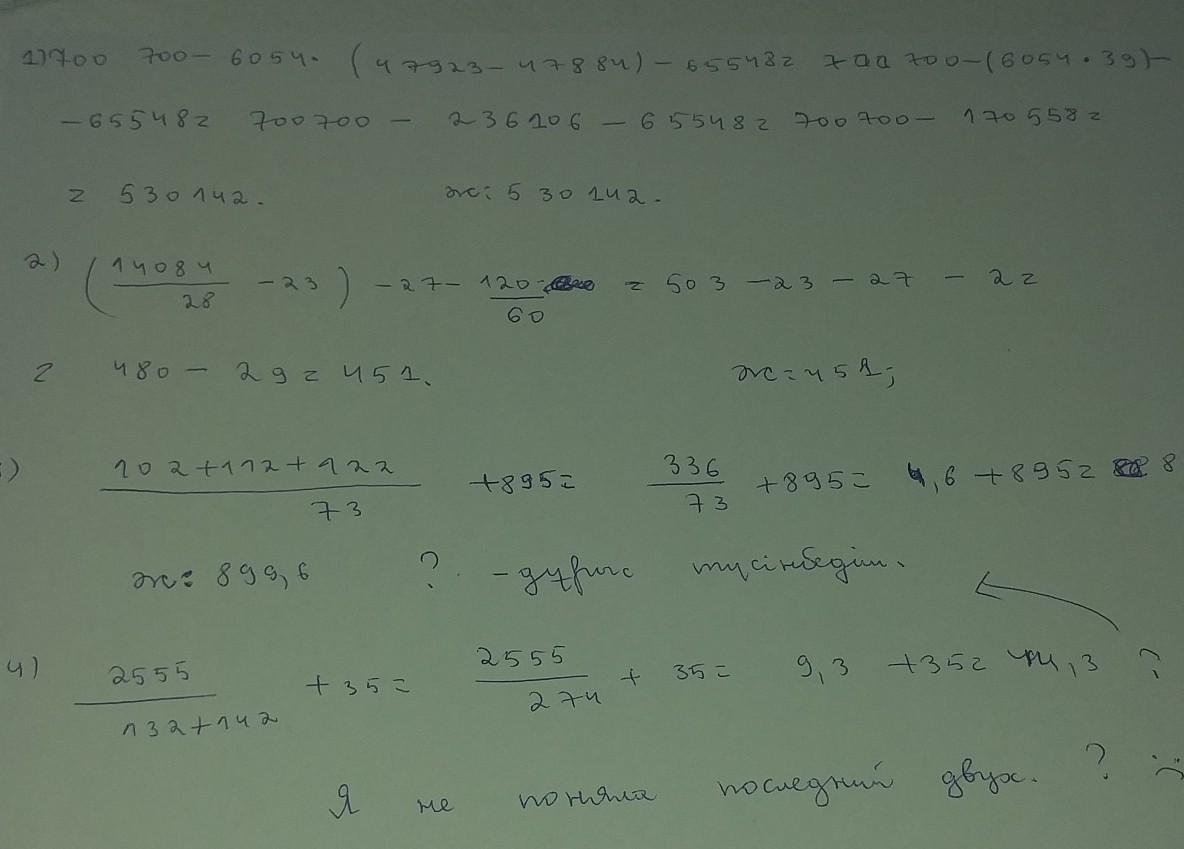 1) 700 700 - 6054 · (47923 - 47884) - 65548 = 700 700 - (6054 · 39) -
- 65548 = 700700 - 236106 - 65548 = 700700 - 170558 =
= 530142. ж: 530142.
2) (14084/28 - 23) - 27 - 120/60 = 503 - 23 - 27 - 2 =
= 480 - 29 = 451. ж = 451;
) 102+112+122/73 + 895 = 336/73 + 895 = 4,6 + 895 = 8
ж: 899,6 ? - дұрыс түсінбедім.
4) 2555/132+142 + 35 = 2555/274 + 35 = 9,3 + 35 = 44,3 ?
Я не поняла последний двух. ? :(